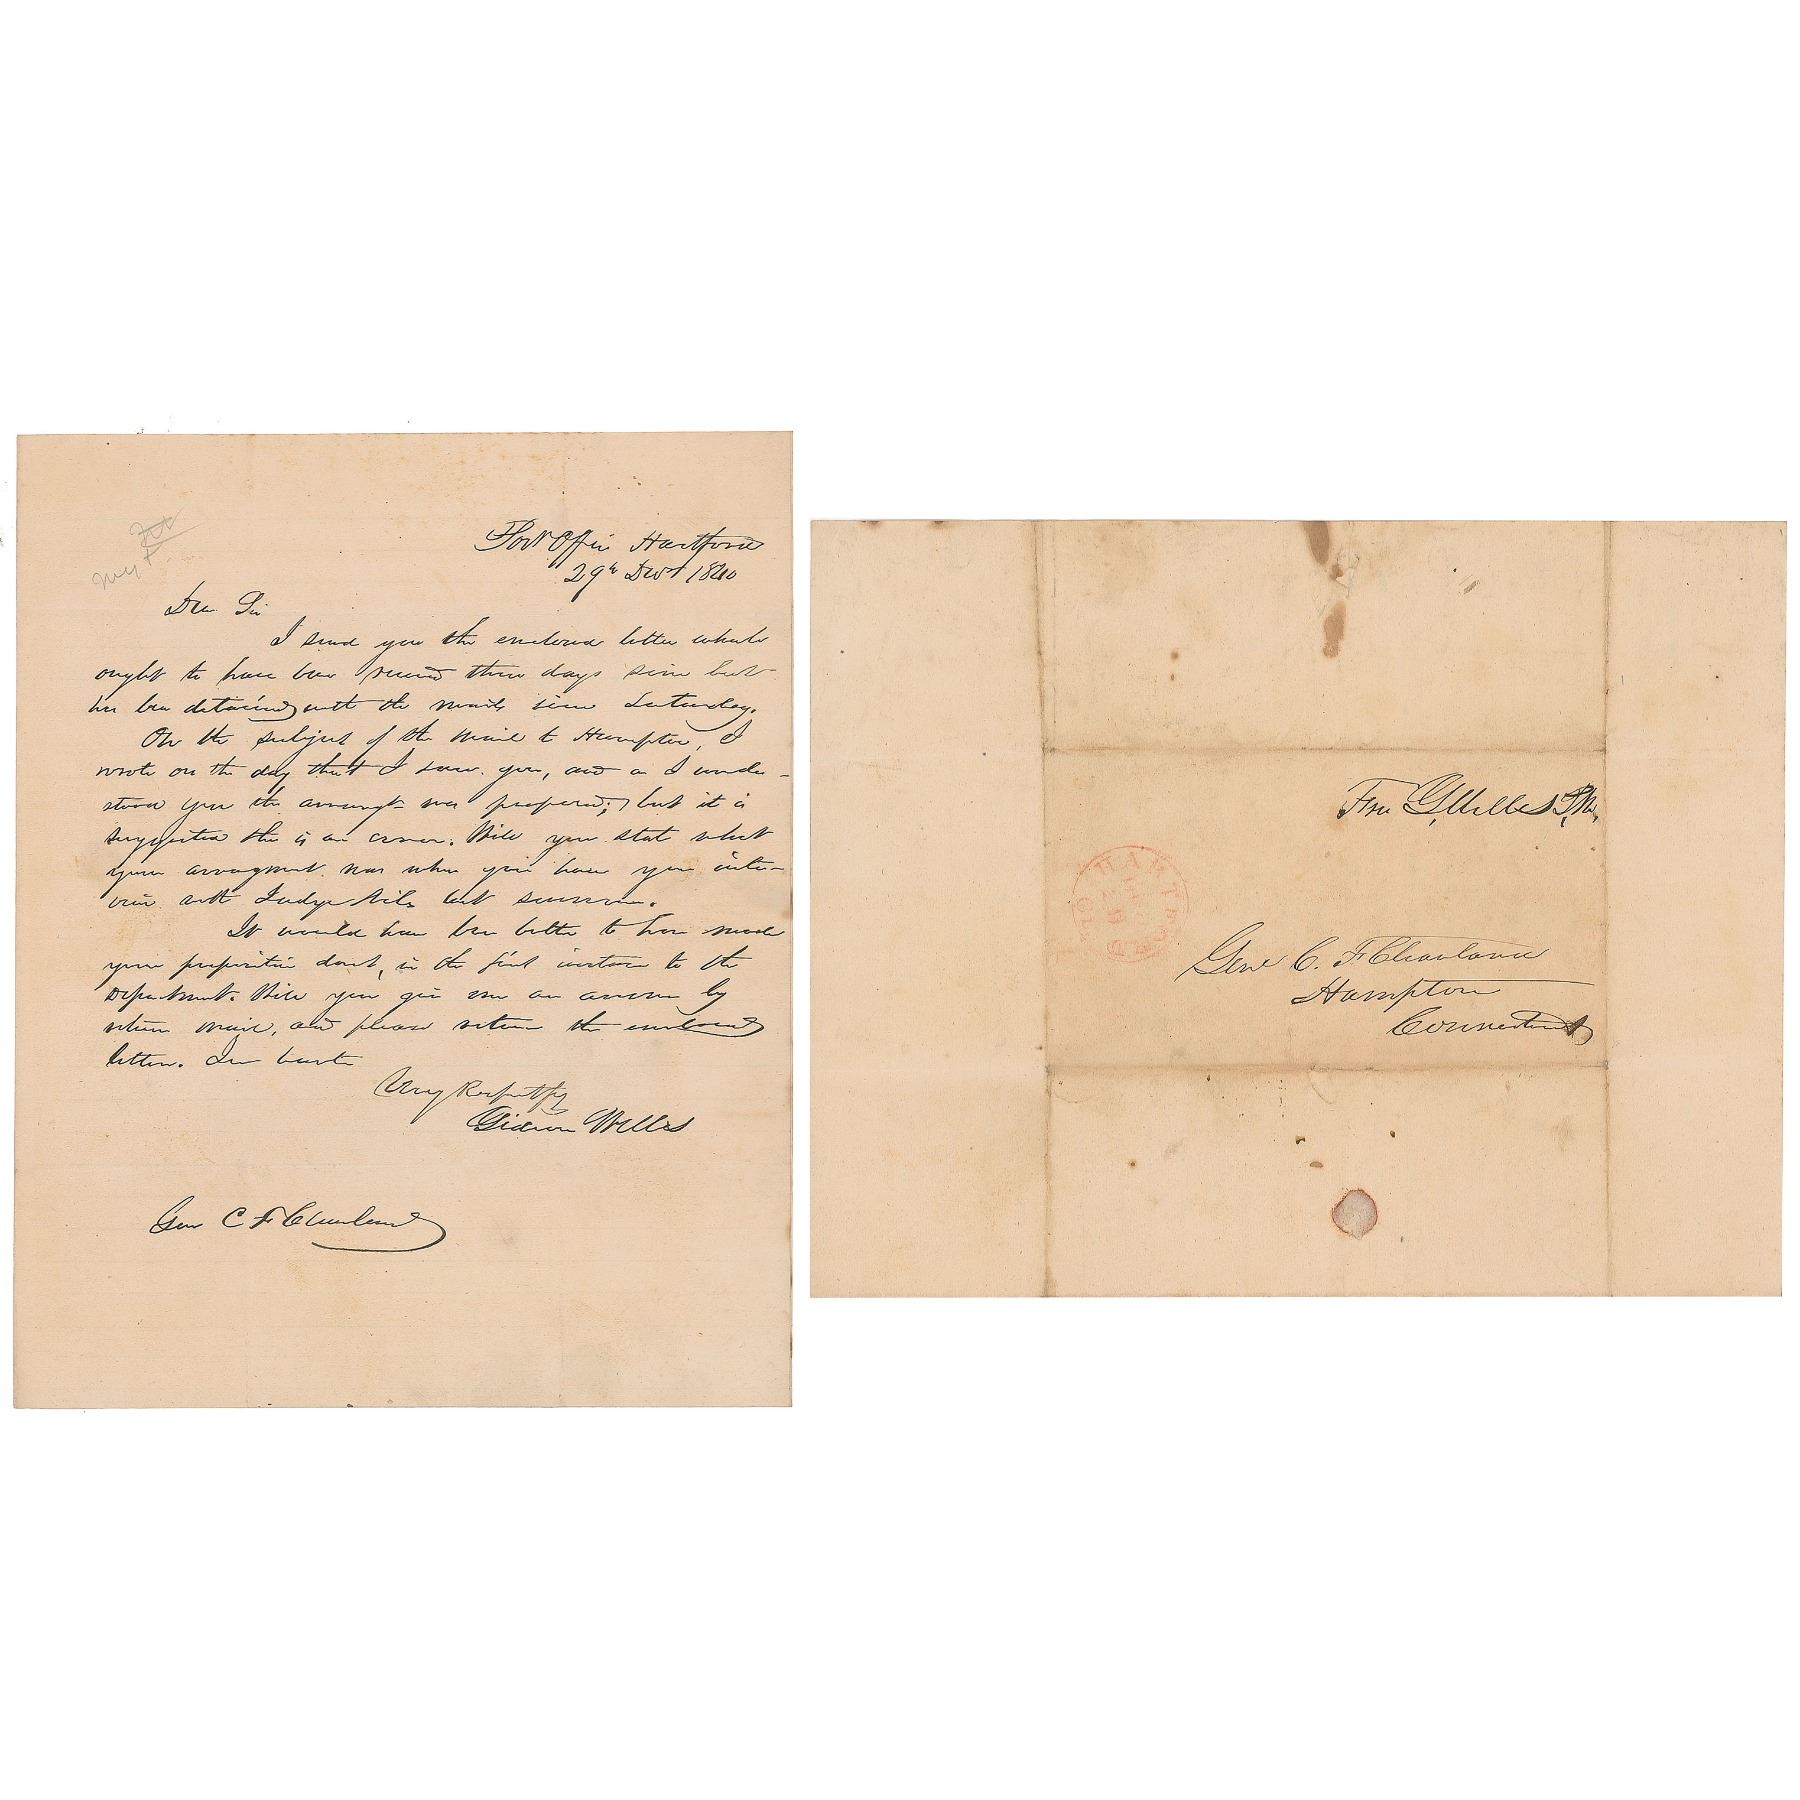 Post Office Hartford
29th Dec 1840
Dear Sir
I send you the enclosed letter which
ought to have been received three days since but
has been detained with the mails since Saturday.
On the subject of the mail to Hampton, I
wrote on the day that I saw you, and as I under-
stood you the arrangt was proposed; but it is
suggested this is an error. Will you state what
your arrangment was when you had your inter-
view with Judge Niles last summer.
It would have been better to have made
your proposition direct, in the first instance to the
Department. Will you give me an answer by
return mail, and please return the enclosed
letter. In haste
Very Respectfy
Gideon Welles
Genl C F Cleveland
Free G. Welles P.M.
HARTFORD
DEC
29
CT.
Genl C. F Cleaveland
Hampton
Connecticut